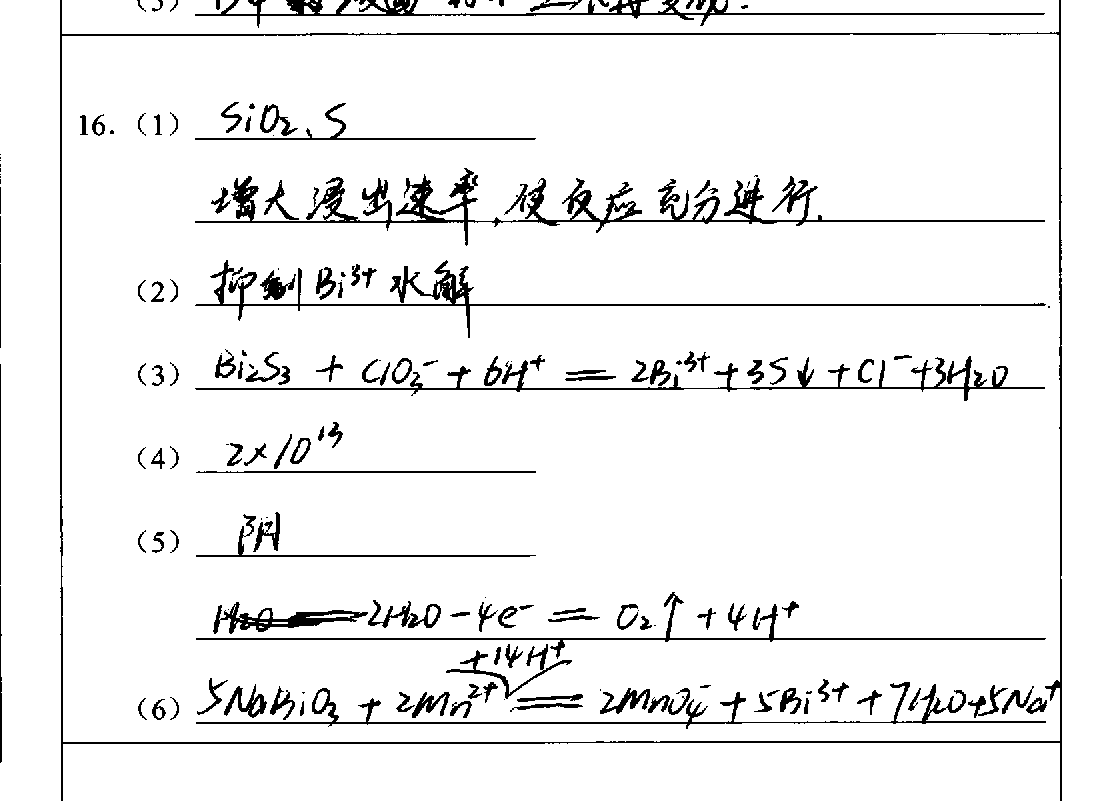 16.（1）SiO₂、S
增大浸出速率，使反应充分进行.
（2）抑制Bi³⁺水解
（3）Bi₂S₃ + ClO₃⁻ + 6H⁺ = 2Bi³⁺ + 3S↓ + Cl⁻ + 3H₂O
（4）2×10¹³
（5）阴
2H₂O - 4e⁻ = O₂↑ + 4H⁺
+14H⁺
（6）5NaBiO₃ + 2Mn²⁺ = 2MnO₄⁻ + 5Bi³⁺ + 7H₂O + 5Na⁺